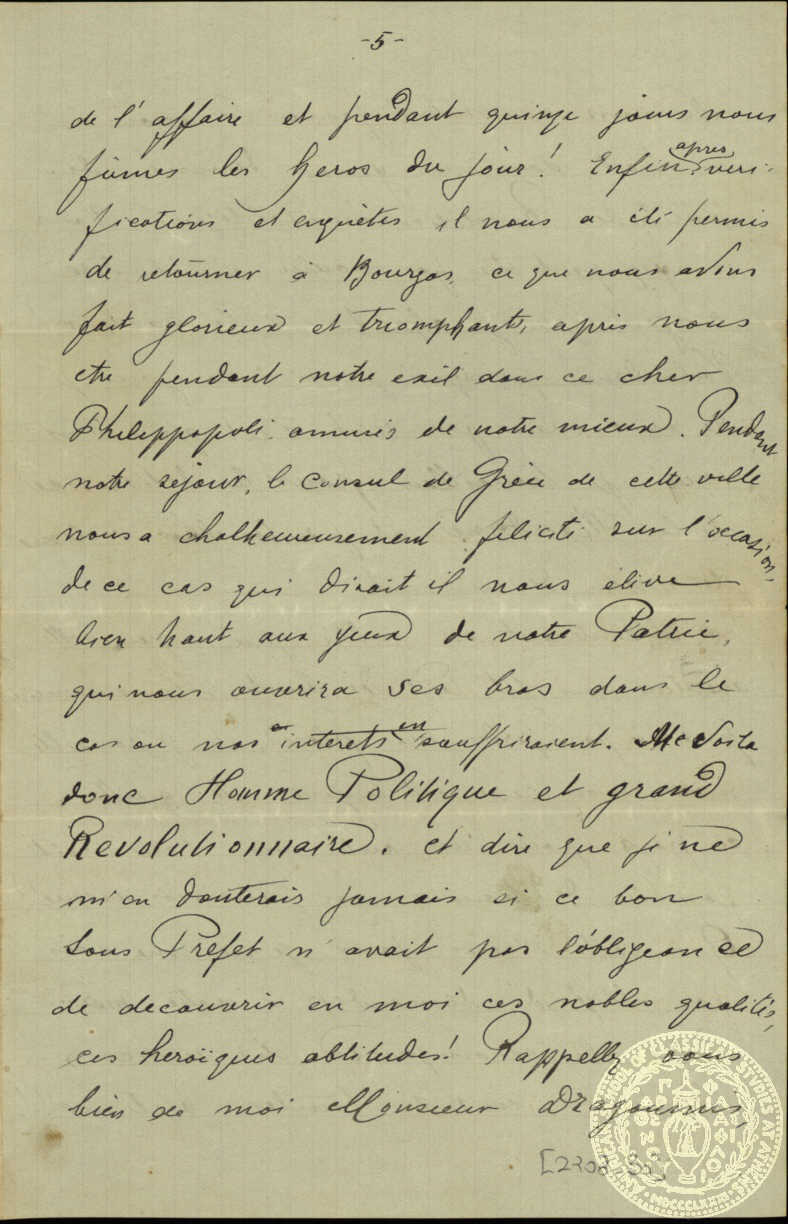 -5-
de l'affaire et pendant quinze jours nous
fûmes les heros du jour! Enfin après veri-
fications et enquêtes il nous a été permis
de retourner à Bourgas, ce que nous avons
fait glorieux et triomphants, apres nous
etre pendant notre exil dans ce cher
Philippopoli amusés de notre mieux. Pendant
notre sejour, le Consul de Grèce de cette ville
nous a chalheureusement felicité sur l'occasion
de ce cas qui disait il nous élève
bien haut aux yeux de notre Patrie,
qui nous ouvrira ses bras dans le
cas ou nos interets en souffriraient. Me voila
donc Homme Politique et grand
Revolutionnaire. et dire que je ne
m'en douterais jamais si ce bon
Sous Prefet n'avait pas l'obligeance
de decouvrir en moi ces nobles qualités,
ces heroïques abtitudes! Rappellez vous
bien de moi Monsieur Dragoumis,
MDCCCLXXXI